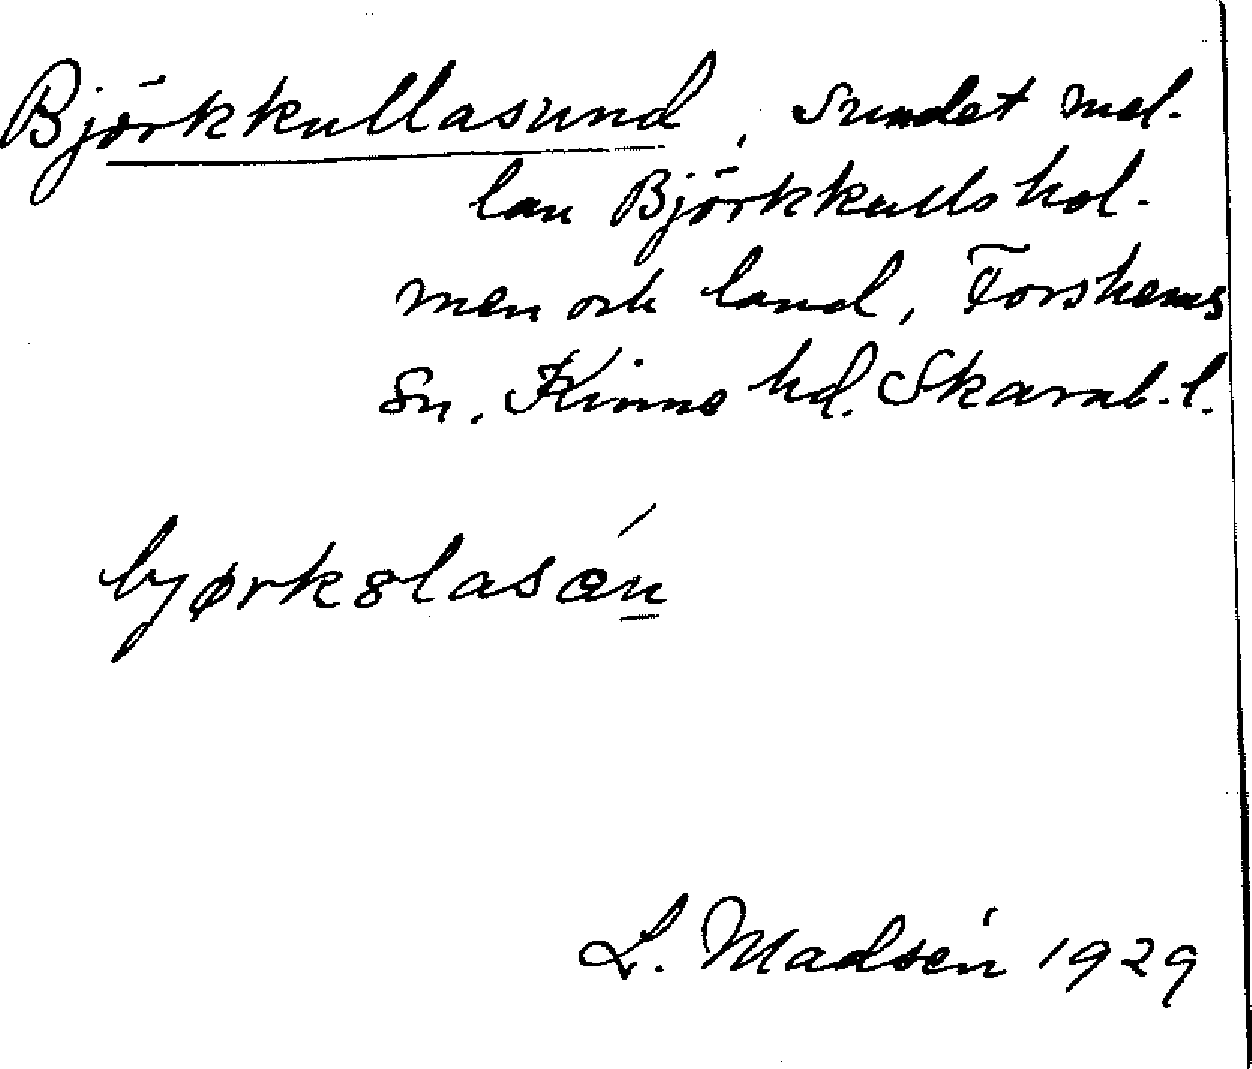 Björkkullasund, sundet mel-
lan Björkkullshol-
men och land, Forshems
Sn. Kinne hd. Skarab. l.
bjørkslasón
L. Madsén 1929